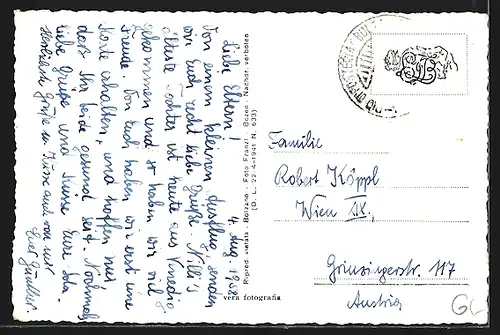 4. Aug. 1958
Liebe Eltern!
Von einem kleinen Ausflug, senden
wir Euch recht liebe Grüße. Nilli's
älteste Tochter ist heute aus Venedig
gekommen und so haben wir viel
Freude. Von Euch haben wir erst eine
Karte erhalten, und hoffen nur,
daß Ihr beide gesund seid. Nochmals
liebe Grüße und Küsse Eure
Herzlichste Grüße u. Küsse auch von mir
Euer Günther
Riprod. vietata - Bolzano - Foto Franzl - Bozen - Nachdr. verboten
(D. L. 22-4-1941 N. 633)
vera fotografia
Familie
Robert Köppl
Wien XIX.,
Grinzingerstr. 117
Austria